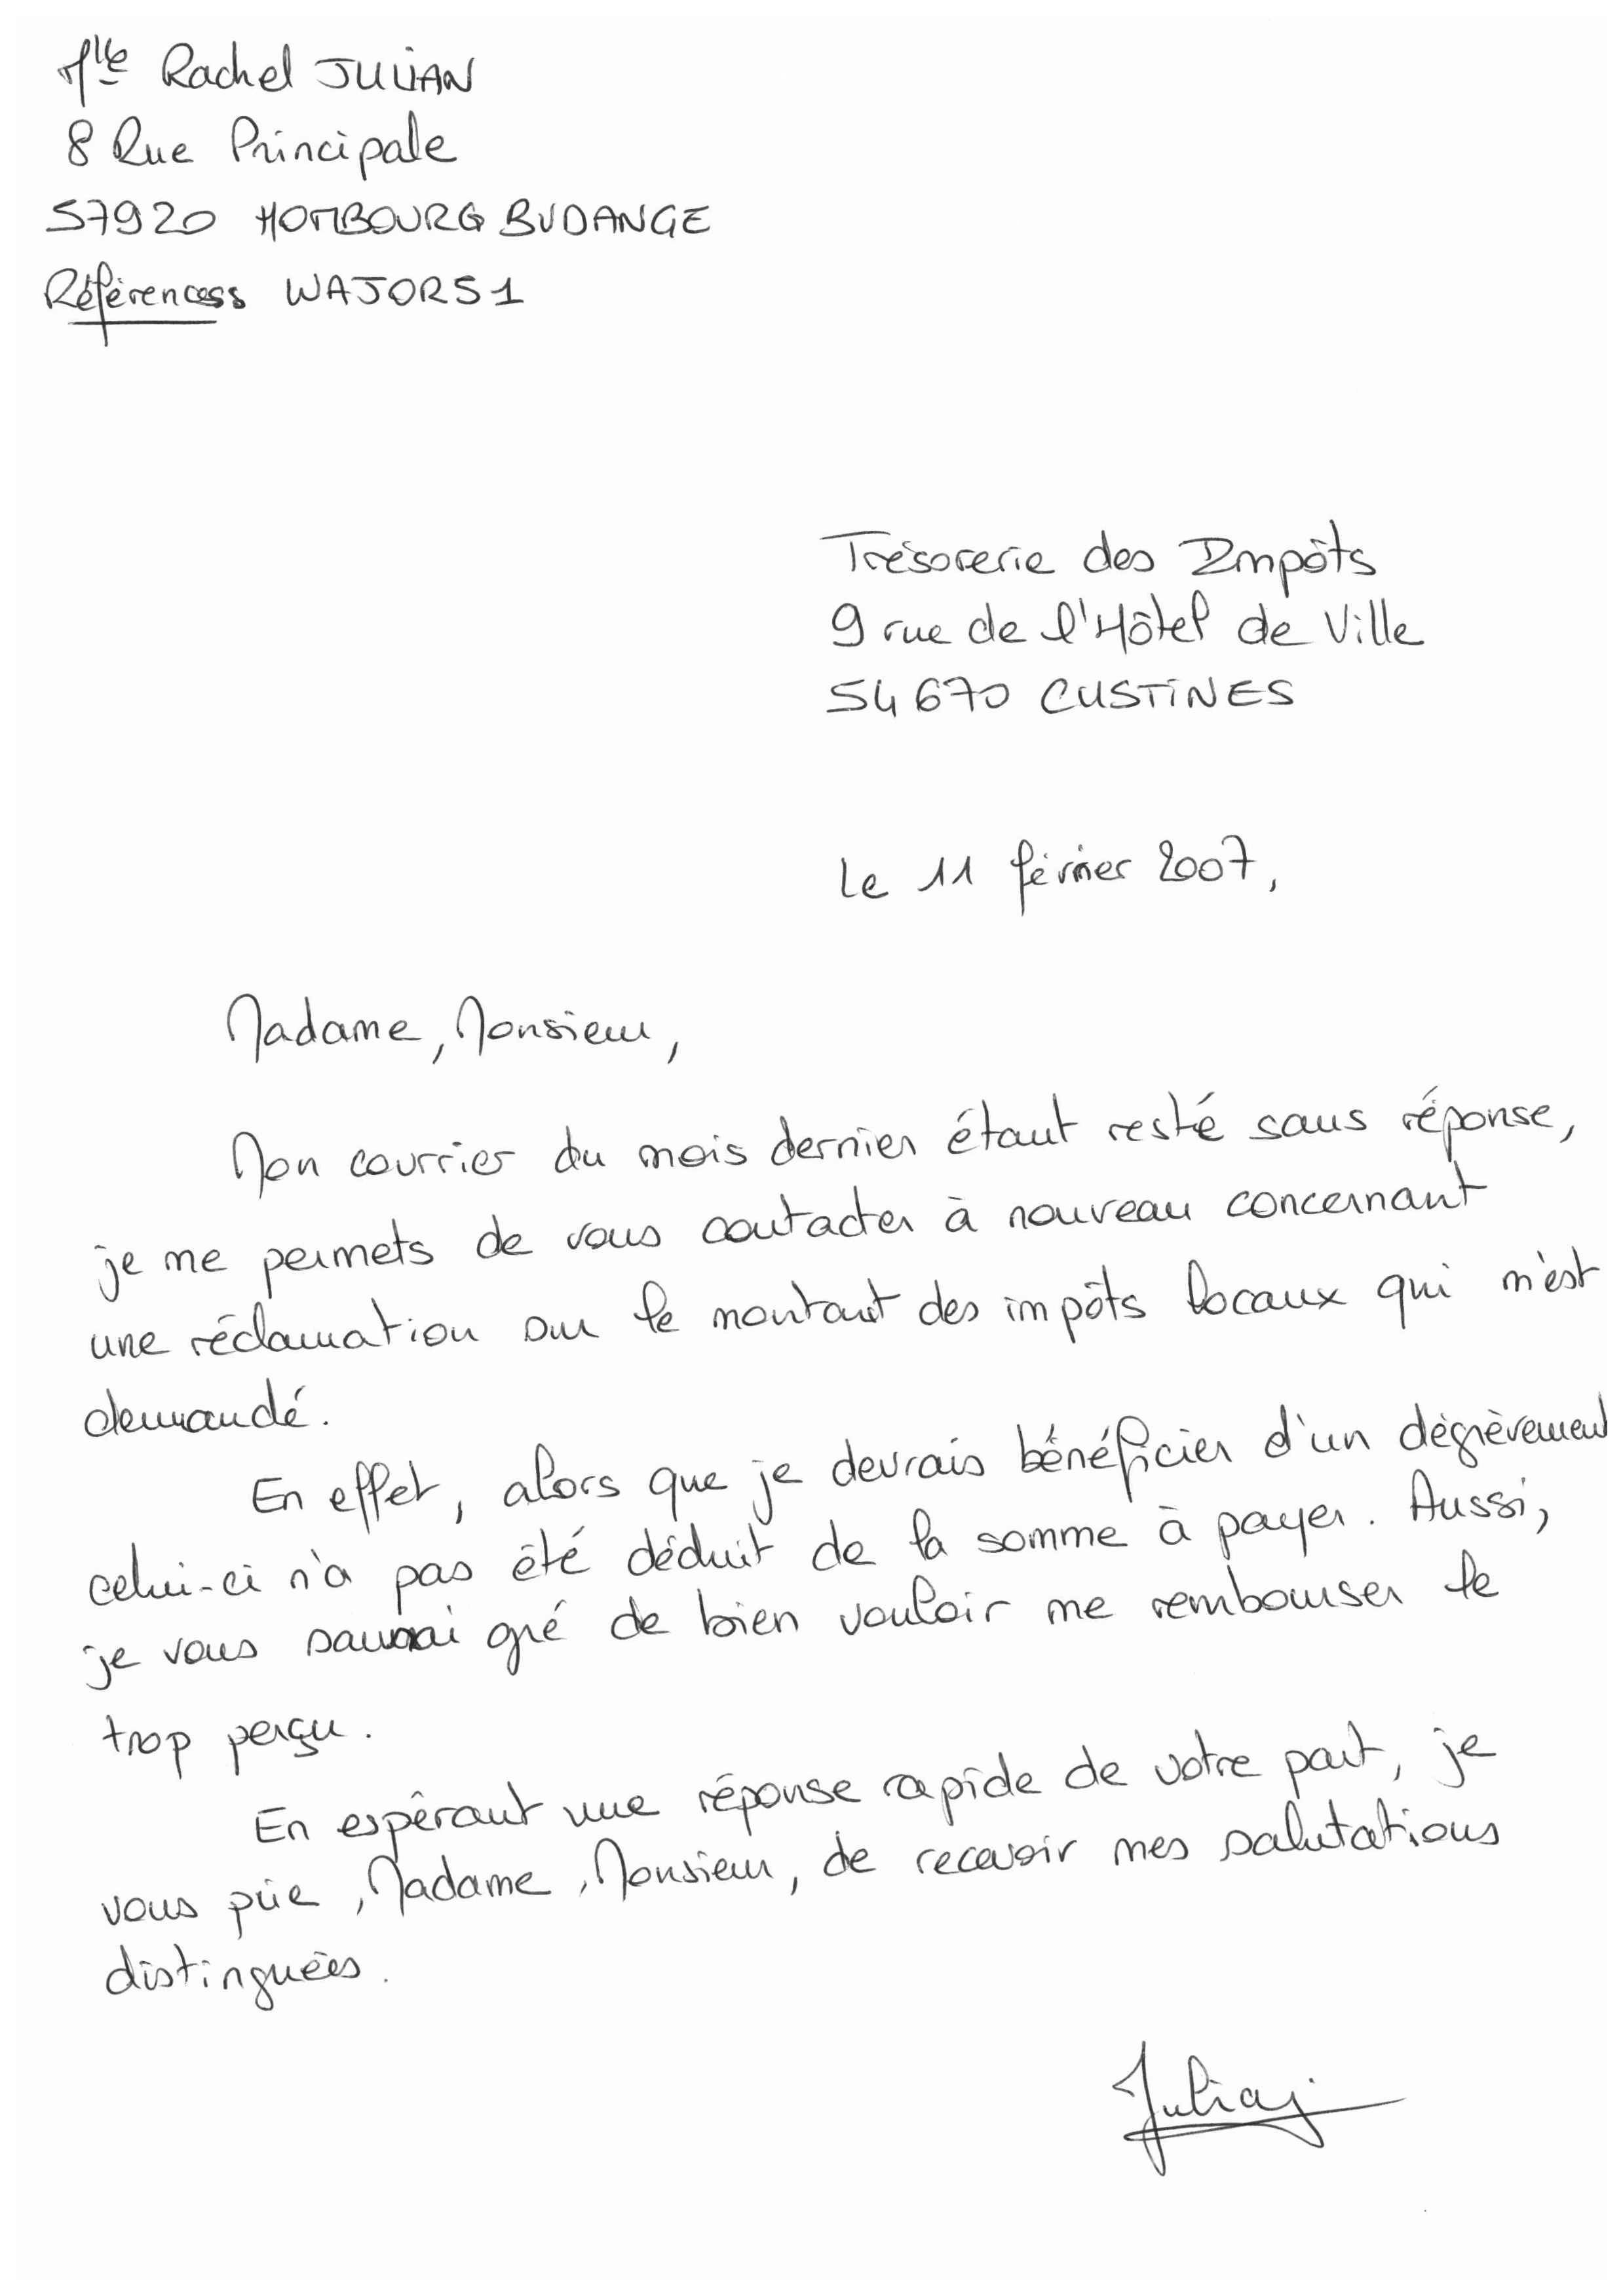 Mlle Rachel JULIAN
8 Rue Principale
57920 HOMBOURG BUDANGE
Référencess WAJOR51
Trésorerie des Impôts
9 rue de l'Hôtel de Ville
54670 CUSTINES
Le 11 février 2007,
Madame, Monsieur,
Mon courrier du mois dernier étant resté sans réponse,
je me permets de vous contacter à nouveau concernant
une réclamation sur le montant des impôts locaux qui m'est
demandé.
En effet, alors que je devrais bénéficier d'un dégrèvement
celui-ci n'a pas été déduit de la somme à payer. Aussi,
je vous saurai gré de bien vouloir me rembourser le
trop perçu.
En espérant une réponse rapide de votre part, je
vous prie, Madame, Monsieur, de recevoir mes salutations
distinguées.
Julian